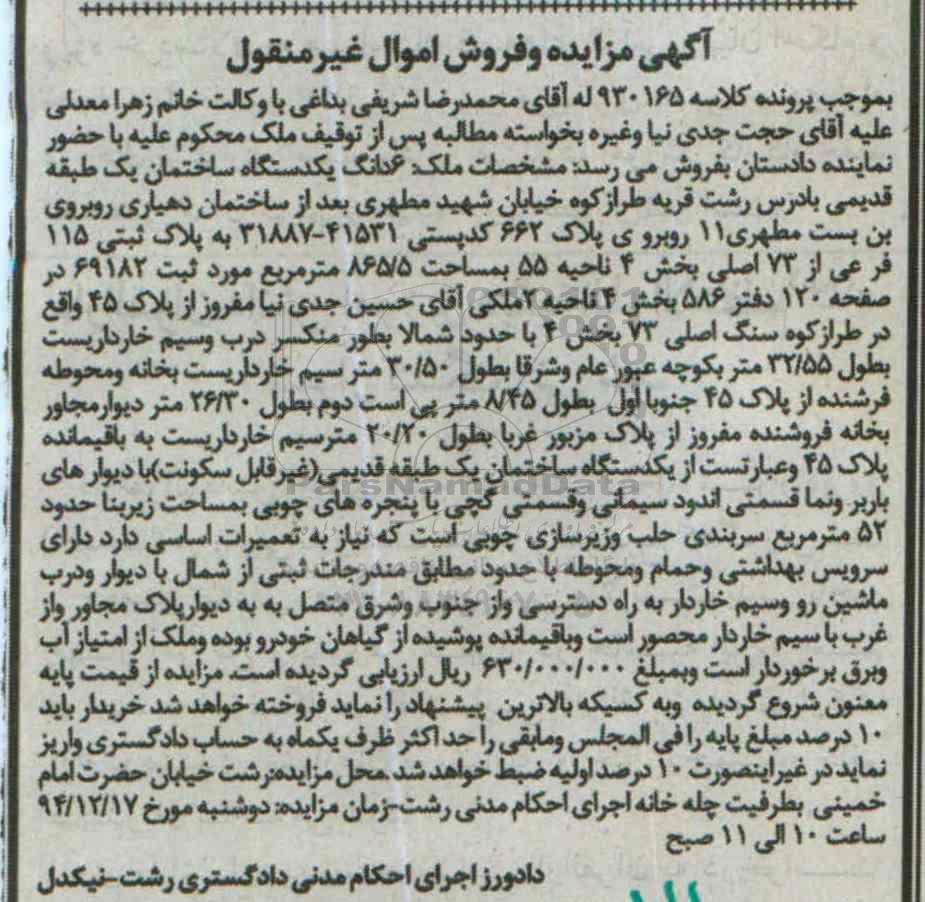 آگهی مزایده وفروش اموال غیرمنقول
بموجب پرونده کلاسه ۹۳۰۱۶۵ له آقای محمدرضا شریفی بداغی با وکالت خانم زهرا معدلی
علیه آقای حجت جدی نیا وغیره بخواسته مطالبه پس از توقیف ملک محکوم علیه با حضور
نماینده دادستان بفروش می رسد: مشخصات ملک: ۶دانگ یکدستگاه ساختمان یک طبقه
قدیمی بادرس رشت قریه طرازکوه خیابان شهید مطهری بعد از ساختمان دهیاری روبروی
بن بست مطهری۱۱ روبرو ی پلاک ۶۶۲ کدپستی ۴۱۵۳۱-۳۱۸۸۷ به پلاک ثبتی ۱۱۵
فر عی از ۷۳ اصلی بخش ۴ ناحیه ۵۵ بمساحت ۸۶۵/۵ مترمربع مورد ثبت ۶۹۱۸۲ در
صفحه ۱۲۰ دفتر ۵۸۶ بخش ۴ ناحیه ۲ملکی آقای حسین جدی نیا مفروز از پلاک ۴۵ واقع
در طرازکوه سنگ اصلی ۷۳ بخش ۴ با حدود شمالا بطور منکسر درب وسیم خارداریست
بطول ۳۲/۵۵ متر بکوچه عبور عام وشرقا بطول ۳۰/۵۰ متر سیم خارداریست بخانه ومحوطه
فرشنده از پلاک ۴۵ جنوبا اول بطول ۸/۴۵ متر پی است دوم بطول ۲۶/۳۰ متر دیوارمجاور
بخانه فروشنده مفروز از پلاک مزبور غربا بطول ۲۰/۲۰ مترسیم خارداریست به باقیمانده
پلاک ۴۵ وعبارتست از یکدستگاه ساختمان یک طبقه قدیمی(غیرقابل سکونت)با دیوار های
باربر ونما قسمتی اندود سیمانی وقسمتی گچی با پنجره های چوبی بمساحت زیربنا حدود
ParsNamadData
۵۲ مترمربع سربندی حلب وزیرسازی چوبی است که نیاز به تعمیرات اساسی دارد دارای
سرویس بهداشتی وحمام ومحوطه با حدود مطابق مندرجات ثبتی از شمال با دیوار ودرب
ماشین رو وسیم خاردار به راه دسترسی واز جنوب وشرق متصل به به دیوارپلاک مجاور واز
غرب با سیم خاردار محصور است وباقیمانده پوشیده از گیاهان خودرو بوده وملک از امتیاز آب
وبرق برخوردار است وبمبلغ ۶۳۰/۰۰۰/۰۰۰ ریال ارزیابی گردیده است. مزایده از قیمت پایه
معنون شروع گردیده وبه کسیکه بالاترین پیشنهاد را نماید فروخته خواهد شد خریدار باید
۱۰ درصد مبلغ پایه را فی المجلس ومابقی را حداکثر ظرف یکماه به حساب دادگستری واریز
نماید در غیراینصورت ۱۰ درصد اولیه ضبط خواهد شد.محل مزایده:رشت خیابان حضرت امام
خمینی بطرفیت چله خانه اجرای احکام مدنی رشت-زمان مزایده: دوشنبه مورخ ۹۴/۱۲/۱۷
ساعت ۱۰ الی ۱۱ صبح
دادورز اجرای احکام مدنی دادگستری رشت-نیکدل